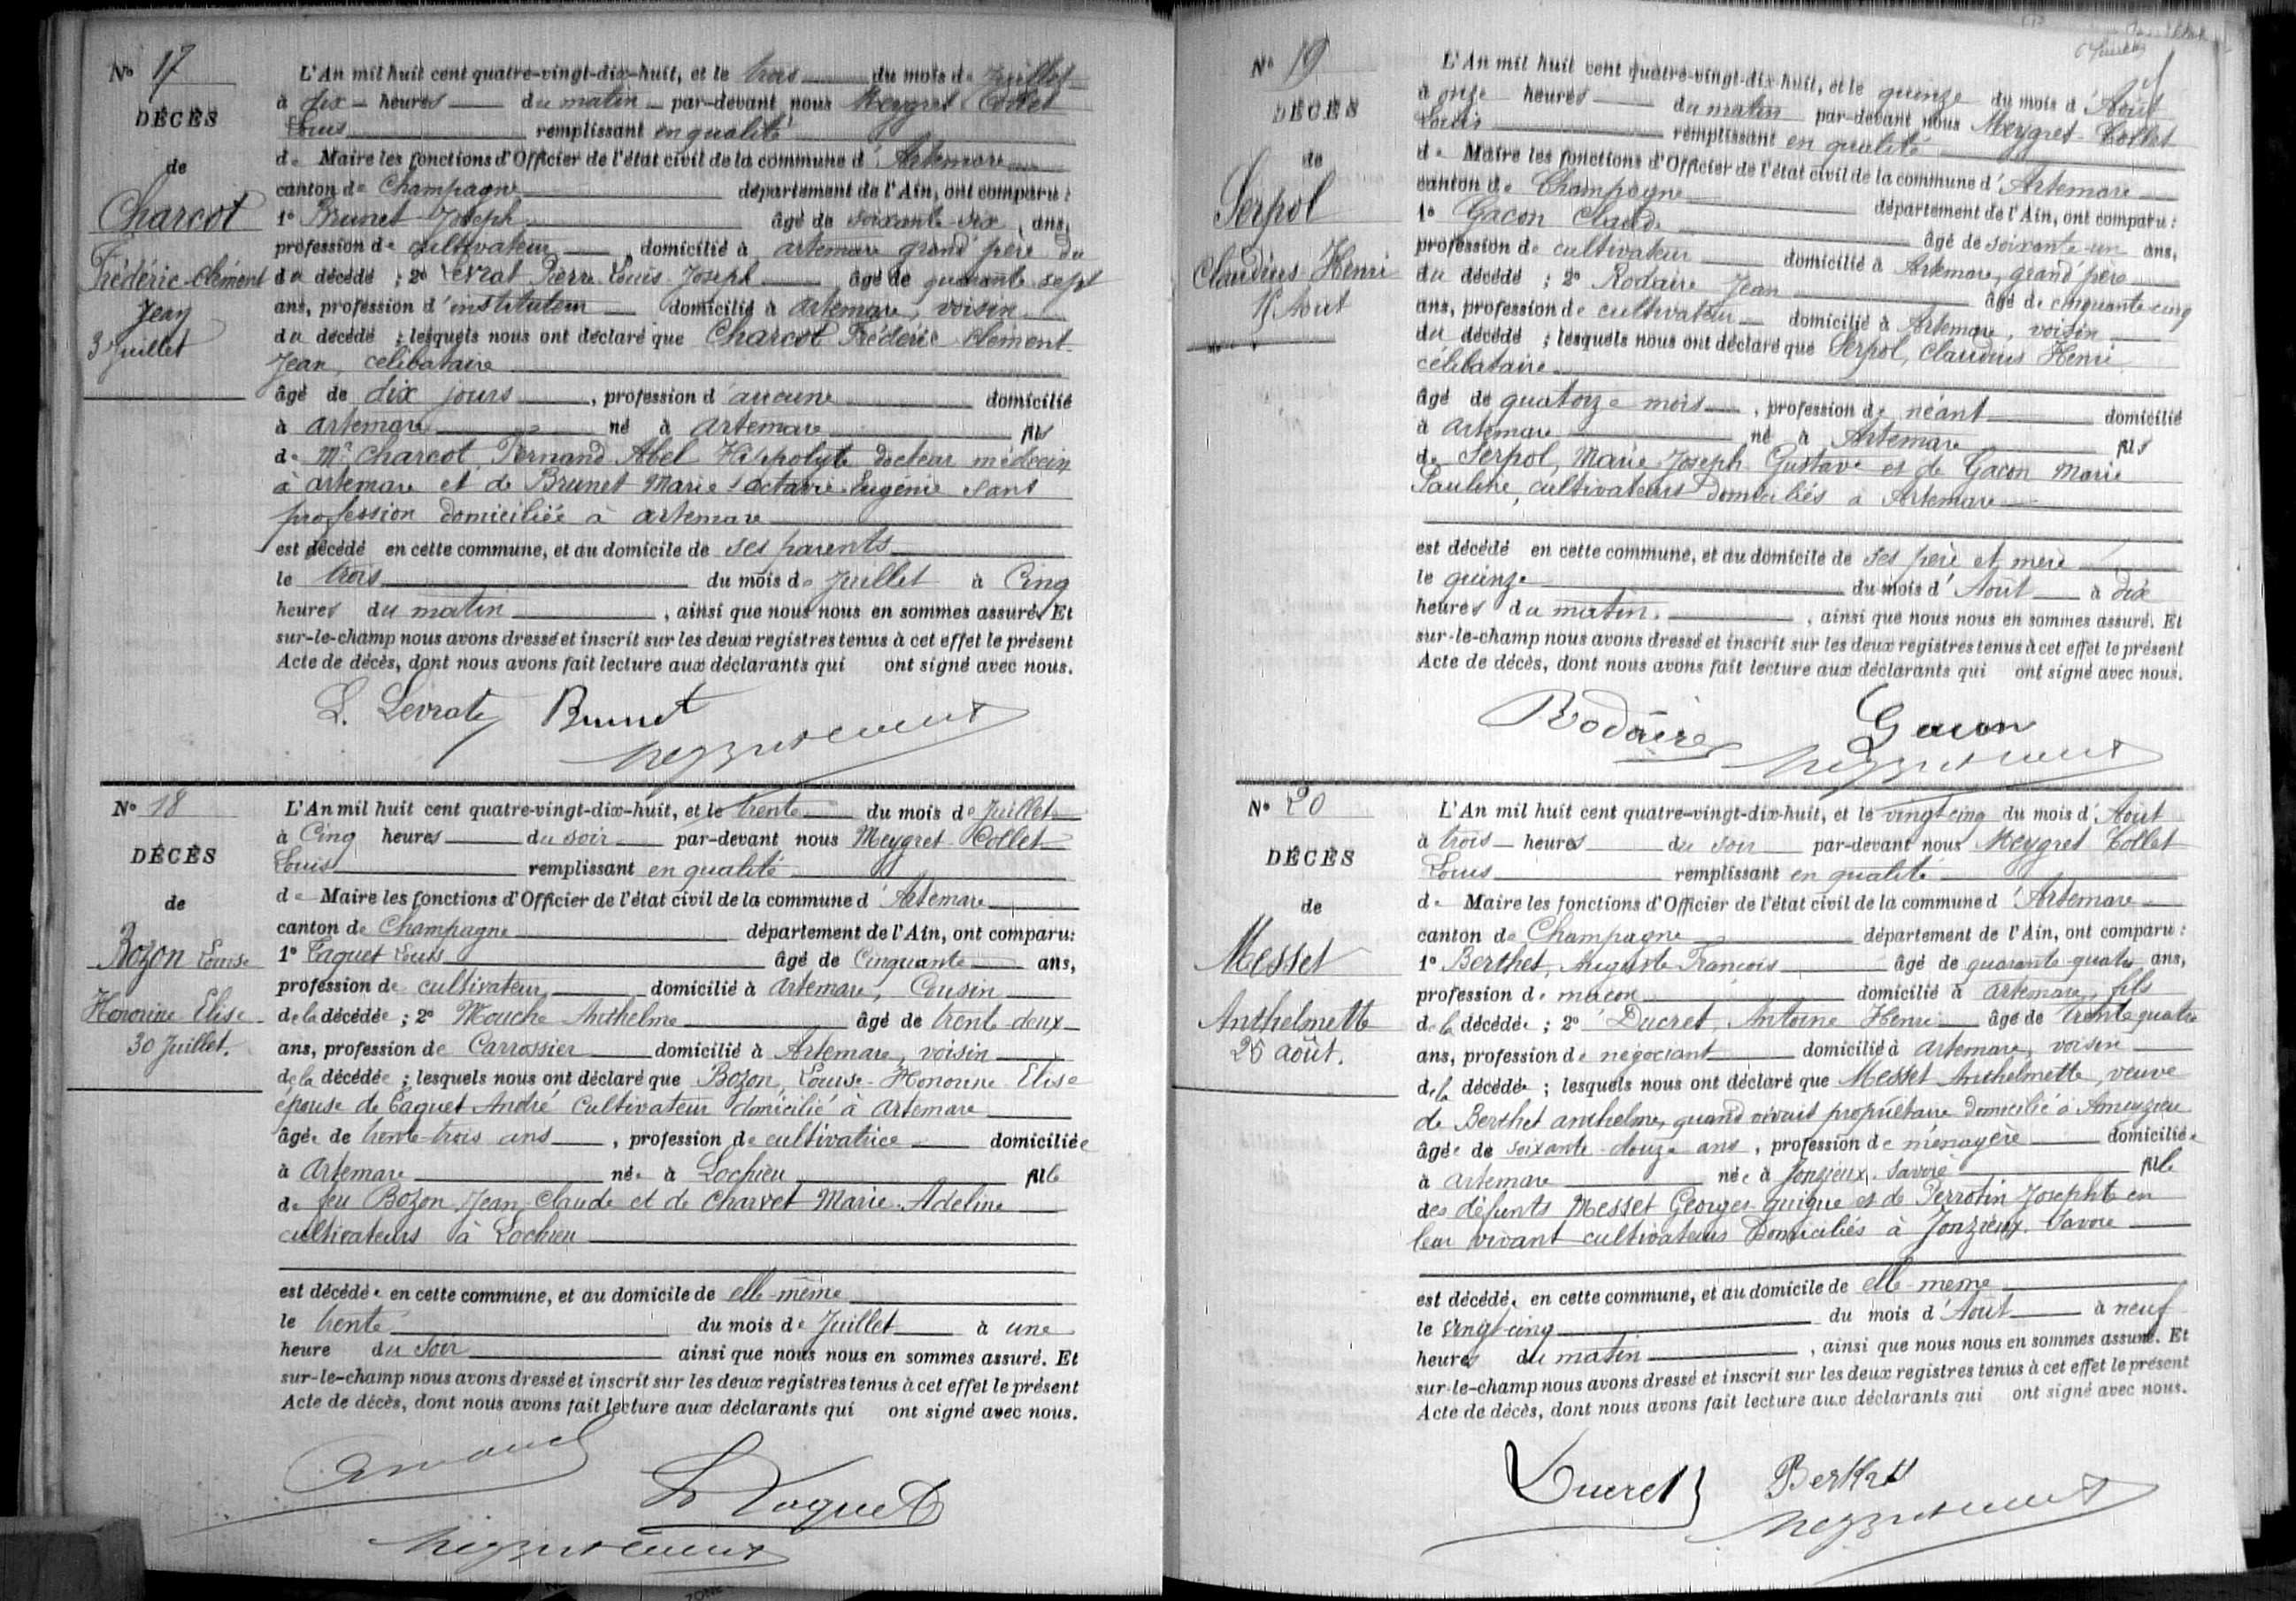 N° 17
DÉCÈS
de
Charcot
Frédéric-Clément
Jean
3 Juillet
L'An mil huit cent quatre-vingt-dix-huit, et le trois du mois de Juillet
à dix heures du matin par-devant nous Meygret Collet
Louis remplissant en qualité
de Maire les fonctions d'Officier de l'état civil de la commune d'Artemare
canton de Champagne département de l'Ain, ont comparu :
1° Brunet Joseph âgé de soixante-six ans,
profession de cultivateur, domicilié à artemare grand père du
du décédé ; 2° Levrat Pierre Louis Joseph âgé de quarante sept
ans, profession d'instituteur domicilié à artemare, voisin
du décédé ; lesquels nous ont déclaré que Charcot Frédéric Clément
Jean, célibataire
âgé de dix jours, profession d'aucune domicilié
à artemare né à artemare fils
de Mr Charcot Fernand Abel Hippolyte docteur médecin
à artemare et de Brunet Marie Octavie Eugénie sans
profession domiciliée à artemare
est décédé en cette commune, et au domicile de ses parents
le trois du mois de Juillet à Cinq
heures du matin, ainsi que nous nous en sommes assuré. Et
sur-le-champ nous avons dressé et inscrit sur les deux registres tenus à cet effet le présent
Acte de décès, dont nous avons fait lecture aux déclarants qui ont signé avec nous.
L. Levrat Brunet
N° 18
DÉCÈS
de
Bozon Louise
Honorine Elise
30 Juillet.
L'An mil huit cent quatre-vingt-dix-huit, et le trente du mois de Juillet
à Cinq heures du soir par-devant nous Meygret Collet
Louis remplissant en qualité
de Maire les fonctions d'Officier de l'état civil de la commune d'Artemare
canton de Champagne département de l'Ain, ont comparu :
1° Taquet Louis âgé de Cinquante ans,
profession de cultivateur, domicilié à artemare, Cousin
de la décédée ; 2° Mouche Anthelme âgé de trente deux
ans, profession de Carrossier domicilié à Artemare, voisin
de la décédée ; lesquels nous ont déclaré que Bozon, Louise-Honorine Elise
épouse de Taquet André Cultivateur domicilié à artemare
âgée de trente-trois ans, profession de cultivatrice domiciliée
à artemare née à Lochieu fille
de feu Bozon Jean-Claude et de Charvet Marie-Adeline
cultivateurs à Lochieu
est décédée en cette commune, et au domicile de elle-même
le trente du mois de Juillet à une
heure du soir ainsi que nous nous en sommes assuré. Et
sur-le-champ nous avons dressé et inscrit sur les deux registres tenus à cet effet le présent
Acte de décès, dont nous avons fait lecture aux déclarants qui ont signé avec nous.
L Taquet
N° 19
DÉCÈS
de
Serpol
Claudius-Henri
15 Aout
L'An mil huit cent quatre-vingt-dix-huit, et le quinze du mois d'Août
à onze heures du matin par-devant nous Meygret-Collet
Louis remplissant en qualité
de Maire les fonctions d'Officier de l'état civil de la commune d'Artemare
canton de Champagne département de l'Ain, ont comparu :
1° Gacon Claude âgé de soixante-un ans,
profession de cultivateur domicilié à Artemare, grand père
du décédé ; 2° Rodaire Jean âgé de cinquante-cinq
ans, profession de cultivateur domicilié à Artemare, voisin
du décédé ; lesquels nous ont déclaré que Serpol, Claudius Henri
célibataire
âgé de quatorze mois, profession de néant domicilié
à artemare né à Artemare fils
de Serpol, Marie Joseph Gustave et de Gacon Marie
Pauline, cultivateurs domiciliés à Artemare
est décédé en cette commune, et au domicile de ses père et mère
le quinze du mois d'Août à dix
heures du matin, ainsi que nous nous en sommes assuré. Et
sur-le-champ nous avons dressé et inscrit sur les deux registres tenus à cet effet le présent
Acte de décès, dont nous avons fait lecture aux déclarants qui ont signé avec nous.
Rodaire Gacon
N° 20
DÉCÈS
de
Messet
Anthelmette
25 août.
L'An mil huit cent quatre-vingt-dix-huit, et le vingt-cinq du mois d'Août
à trois heures du soir par-devant nous Meygret Collet
Louis remplissant en qualité
de Maire les fonctions d'Officier de l'état civil de la commune d'Artemare
canton de Champagne département de l'Ain, ont comparu :
1° Berthet, Auguste François âgé de quarante-quatre ans,
profession de maçon domicilié à artemare, fils
de la décédée ; 2° Ducret, Antoine Henri âgé de trente quatre
ans, profession de négociant domicilié à artemare, voisin
de la décédée ; lesquels nous ont déclaré que Messet Anthelmette, veuve
de Berthet anthelme, quand vivait propriétaire domicilié à Ameyzieu
âgée de soixante-douze ans, profession de ménagère domiciliée
à artemare née à Jonzieux, Savoie fille
des défunts Messet Georges-Guigue et de Perrotin Josephte en
leur vivant cultivateurs Domiciliés à Jonzieux. Savoie
est décédée en cette commune, et au domicile de elle-même
le vingt-cinq du mois d'Août à neuf
heures du matin, ainsi que nous nous en sommes assuré. Et
sur-le-champ nous avons dressé et inscrit sur les deux registres tenus à cet effet le présent
Acte de décès, dont nous avons fait lecture aux déclarants qui ont signé avec nous.
Ducret Berthet